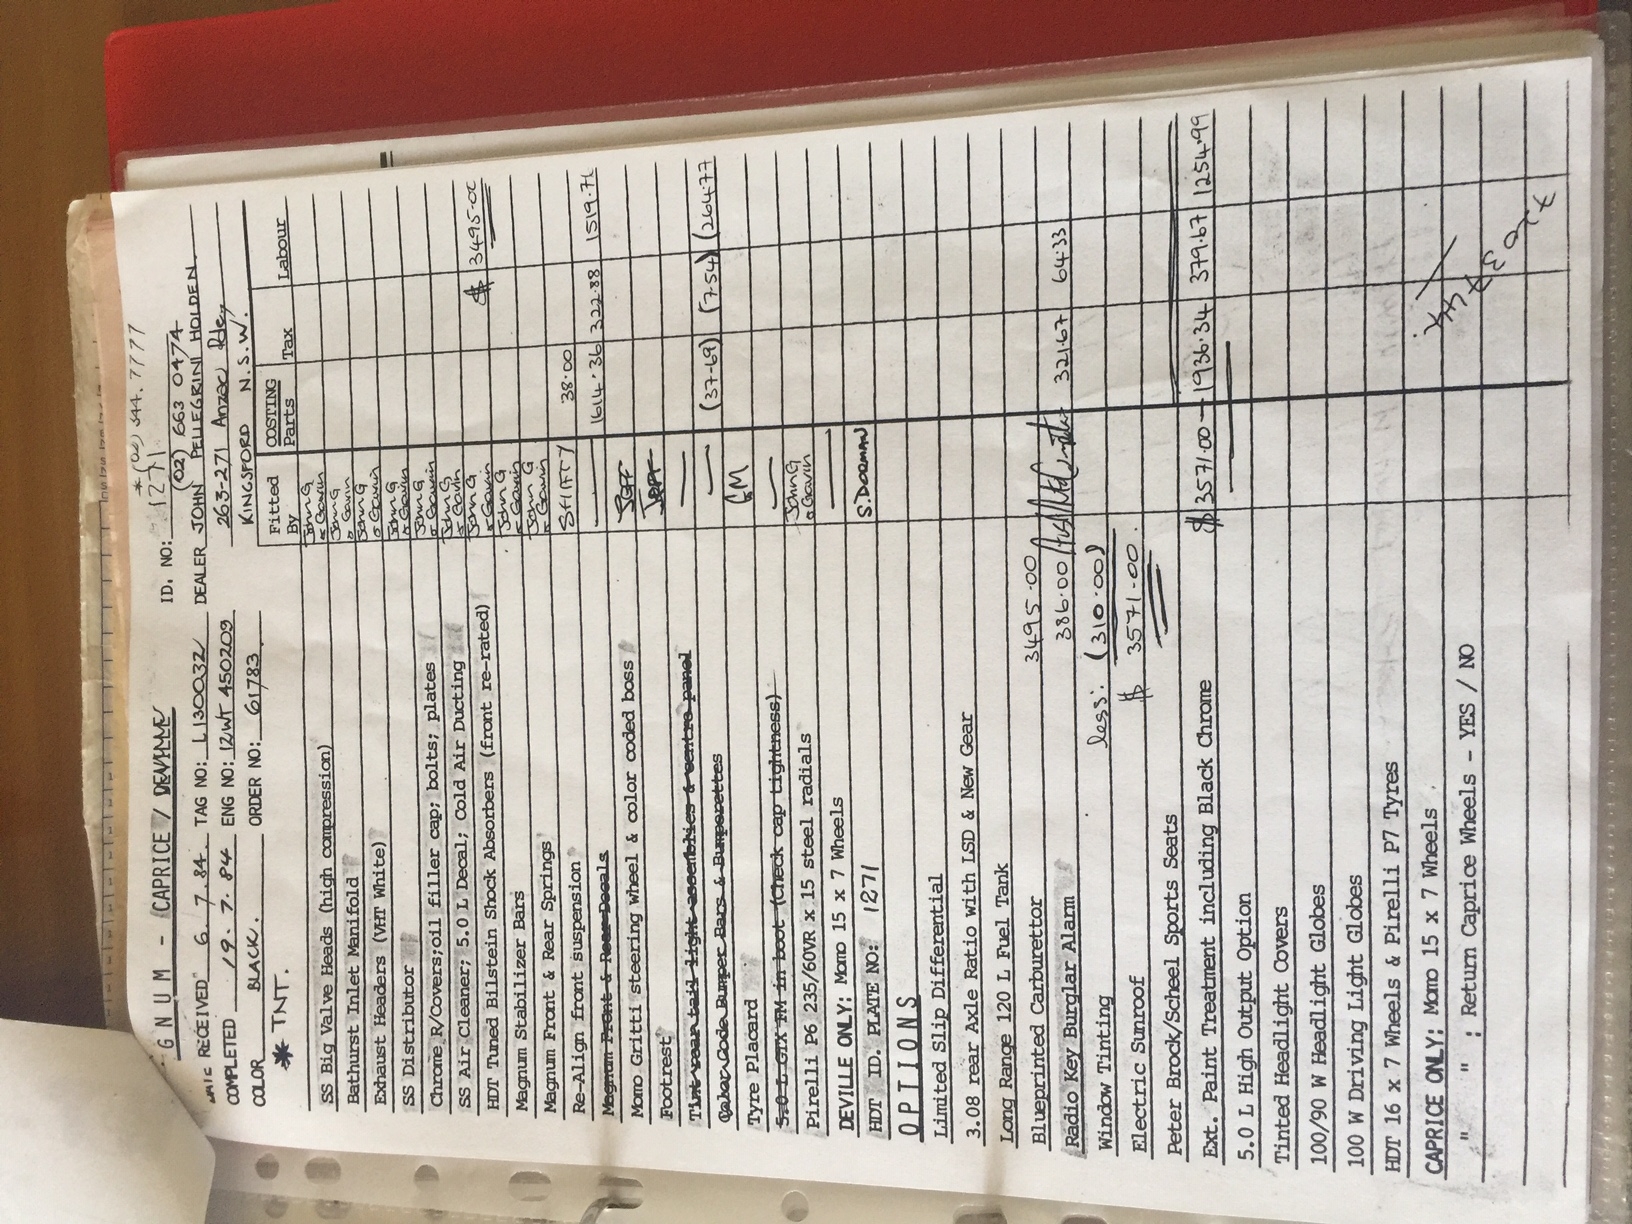 * (02) 344.7777
GNUM - CAPRICE / DEVILLE ID. NO: 1271
(02) 663 0474
RECEIVED 6.7.84 TAG NO: L130032 DEALER JOHN PELLEGRINI HOLDEN
COMPLETED 19.7.84 ENG NO: 12WT 450209 263-271 Anzac Pde,
COLOR BLACK. ORDER NO: 61783 KINGSFORD N.S.W.
* TNT.
Fitted By COSTING Parts Tax Labour
SS Big Valve Heads (high compression) John G & Gavin
Bathurst Inlet Manifold John G & Gavin
Exhaust Headers (VHT White) John G & Gavin
SS Distributor John G & Gavin
Chrome R/covers;oil filler cap; bolts; plates John G & Gavin
SS Air Cleaner; 5.0 L Decal; Cold Air Ducting John G & Gavin $ 3495.00
HDT Tuned Bilstein Shock Absorbers (front re-rated) John G & Gavin
Magnum Stabilizer Bars John G & Gavin
Magnum Front & Rear Springs John G & Gavin
Re-Align front suspension SHIFTY 38.00
Magnum Front & Rear Decals — 1614.36 322.88 1519.76
Momo Gritti steering wheel & color coded boss JEFF
Footrest JEFF
Tint rear tail light assemblies & centre panel —
Color Code Bumper Bars & Bumperettes — (37.69) (7.54) (264.77)
Tyre Placard GM
5.0 L GTX TM in boot (Check cap tightness) —
Pirelli P6 235/60VR x 15 steel radials John G & Gavin
DEVILLE ONLY: Momo 15 x 7 Wheels —
HDT ID. PLATE NO: 1271 S.DORMAN
OPTIONS
Limited Slip Differential
3.08 rear Axle Ratio with LSD & New Gear
Long Range 120 L Fuel Tank
Blueprinted Carburettor 3495.00
Radio Key Burglar Alarm 386.00 321.67 64.33
Window Tinting less: (310.00)
Electric Sunroof $ 3571.00
Peter Brock/Scheel Sports Seats
Ext. Paint Treatment including Black Chrome $3571.00 — 1936.34 379.67 1254.99
5.0 L High Output Option
Tinted Headlight Covers
100/90 W Headlight Globes
100 W Driving Light Globes
HDT 16 x 7 Wheels & Pirelli P7 Tyres
CAPRICE ONLY: Momo 15 x 7 Wheels
" " : Return Caprice Wheels - YES / NO